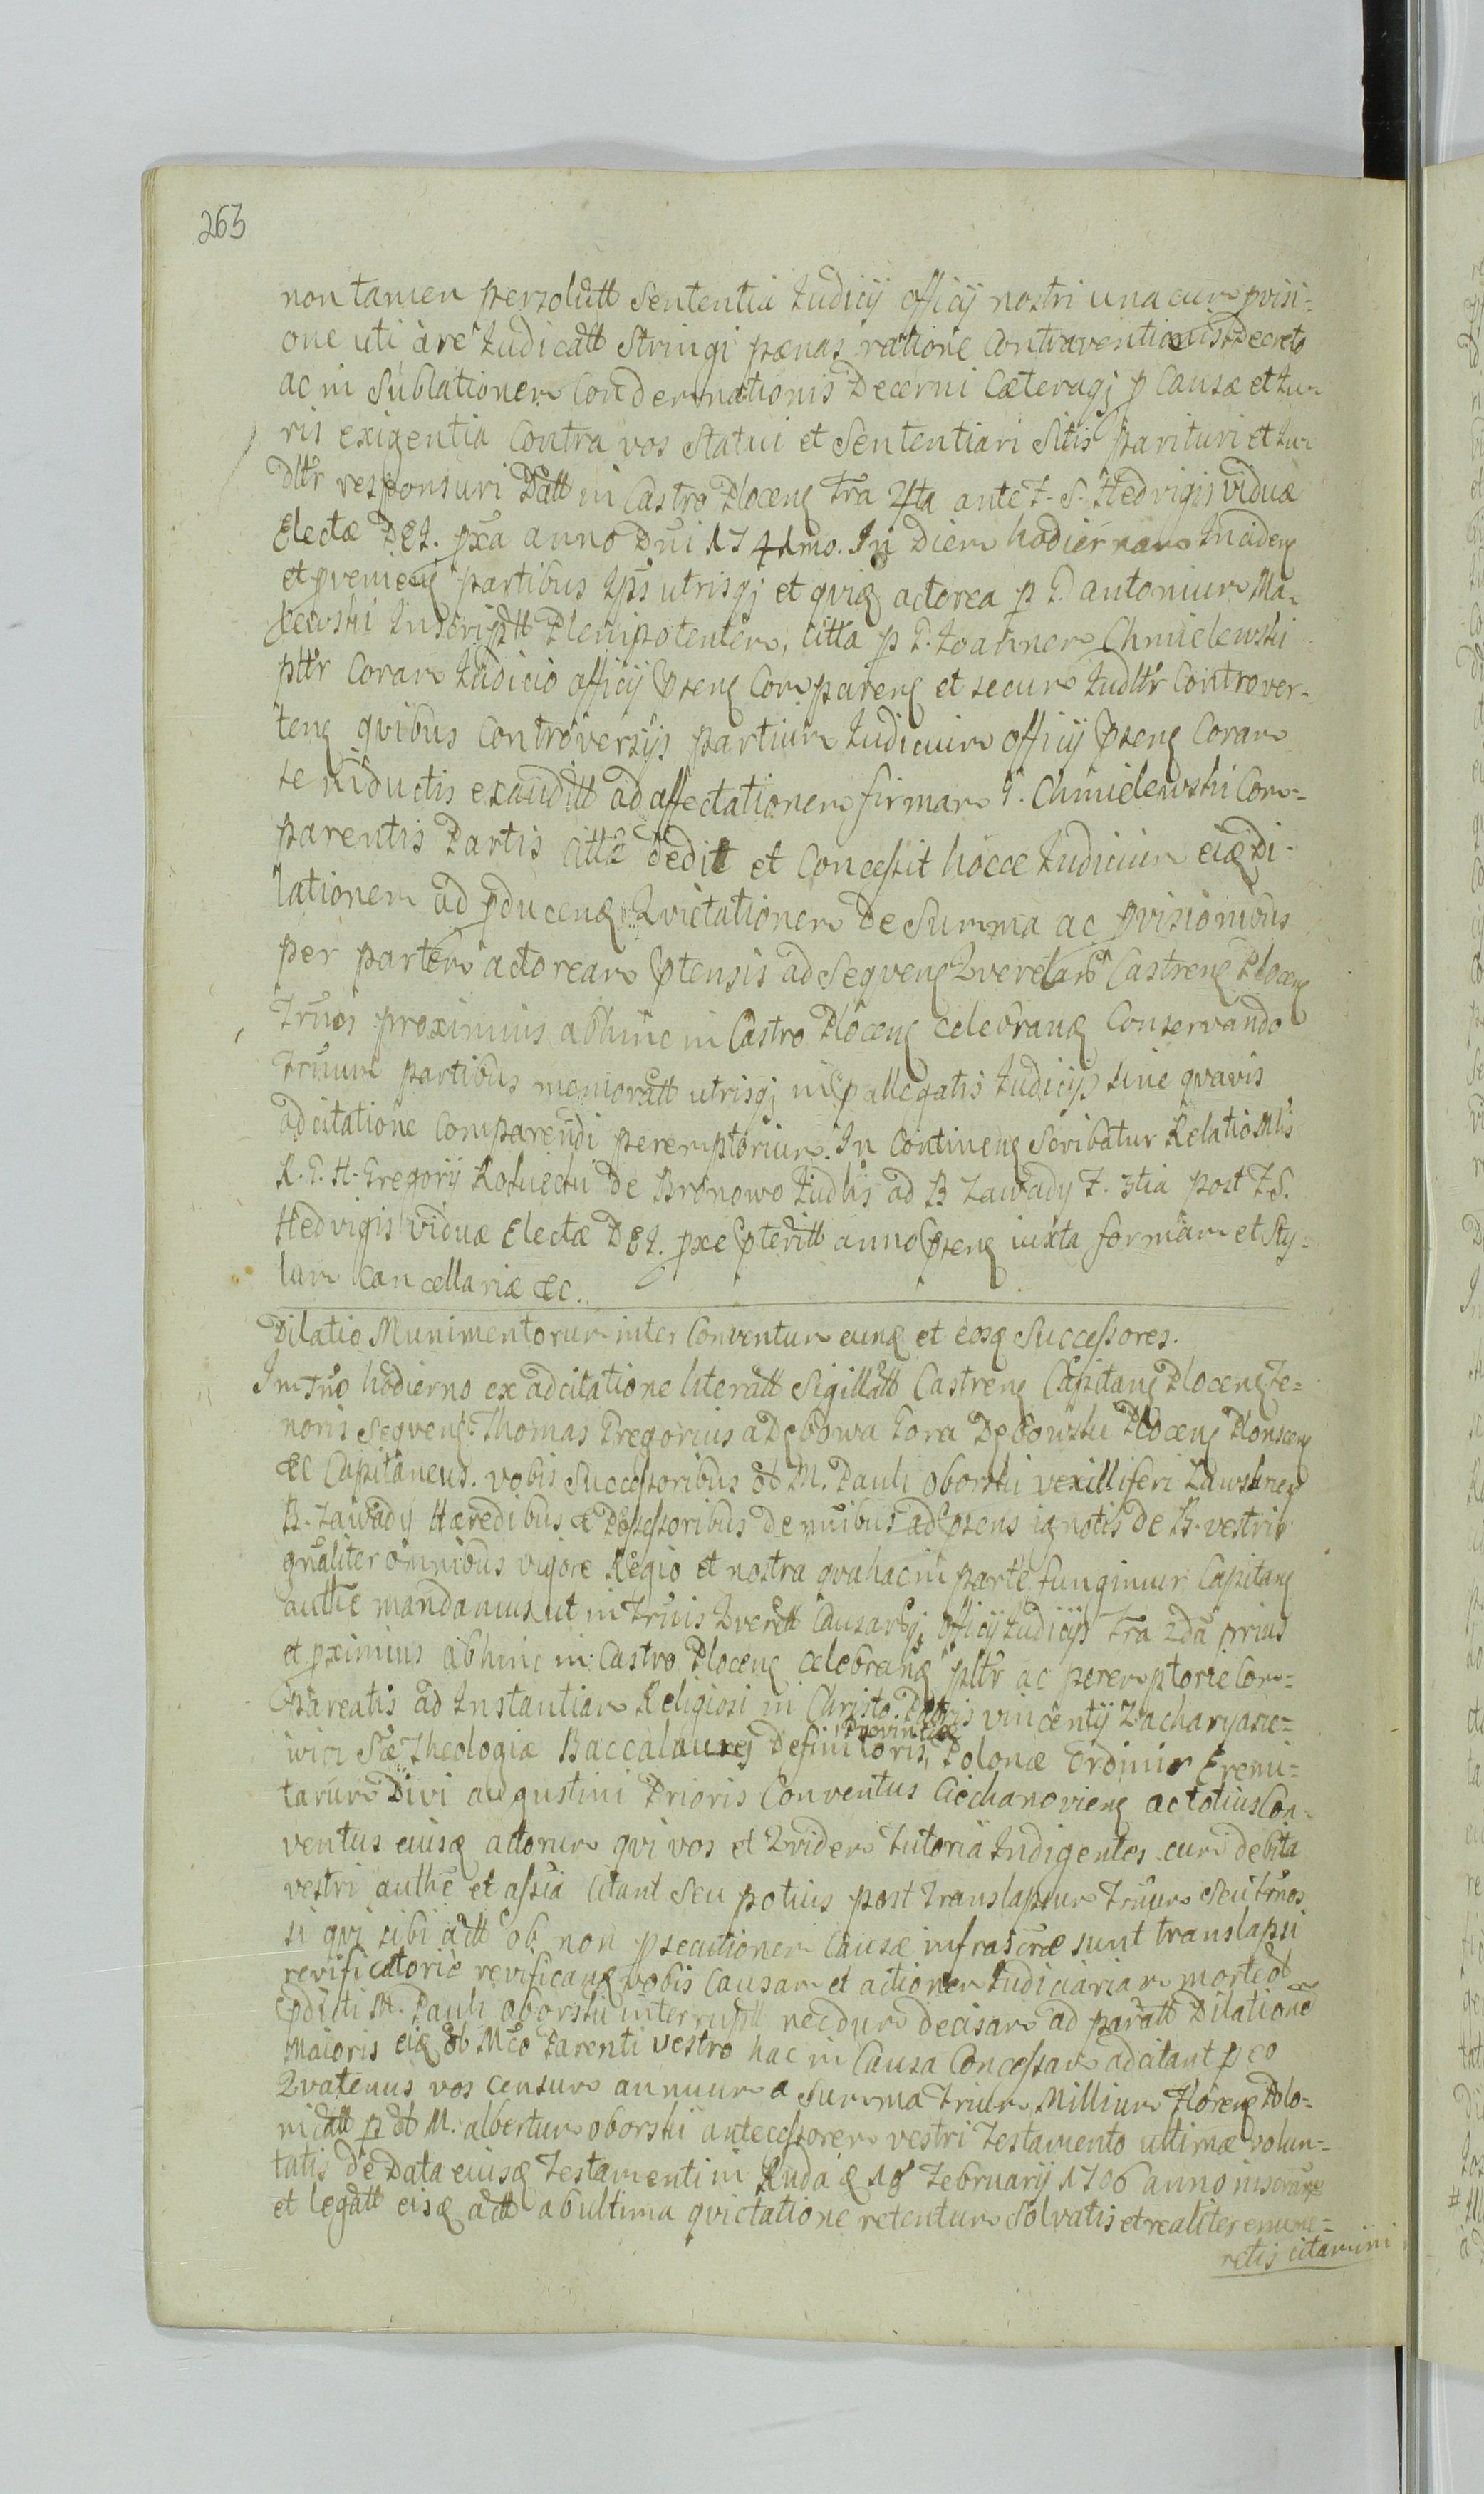 263
non tamen persolutt Sententia Judicij officij nostri una cum pvisi=
one uti a re Judicatt Stringi pænas ratione Contraventionis Decreto
ac in Sublationem Condemnationis Decerni Cæteraqj p Causæ et Ju=
ris exigentia Contra vos Statui et Sententiari Sitis parituri et Ju=
dltr responsuri Datt in Castro Plocen fra 4ta ante F. S. Hedvigis viduæ
Electæ D&I. pxa anno Dni 1741mo. In Diem hodiernam Inciden
et pvenien partibus Ips utrisqj et quidem actorea p G. antonium Ma=
kewski Inscriptt Plenipotentem, citta p G. Joannem Chmielewski
pltr Coram Judicio officij Psen Comparen et secum Judltr Controver=
ten quibus Controversijs partium Judicium officij Psen Coram
se inductis exauditt ad affectationem firmam G. Chmielewski Com=
parentis Partis Cittæ dedit et Concessit hocce Judicium eid Di=
lationem ad pducend Quietationem de Summa ac pvisionibus
per partem actoream Ptensis ad Sequen Querelarum Castren Plocen
Trnos proximius abhinc in Castro Plocen celebrand Conservando
Trnum partibus memoratt utrisqj in Pallegatis Judicijs sine quavis
adcitatione Comparendi peremptorium. In Continen Scribatur Relatio Mlis
R. G. H. Gregorij Kołuęcki de Bronowo Judlis ad B Zawady F. 3tia post F S.
Hedvigis viduæ Electæ D&I. pxe Pteritt anno Psen iuxta formam et Sty=
lum Cancellariæ &c.
Dilatio Munimentorum inter Conventum eund et eosd Successores.
In Trno hodierno ex adcitatione literatt Sigillatt Castren Capitan Plocen Te=
noris Sequen. Thomas Gregorius a Dębowa Gora Dębowski Plocen Płonscen
&c Capitaneus. vobis Successoribus olt M. Pauli oborski vexilliferi Zawskrien
B. Zawady Hæredibus & Possessoribus de nnibus ad Psens ignotis de B. vestris
gnaliter omnibus vigore Regio et nostra qua hac in parte fungimur Capitan
authe mandamus ut in Trnis Querell Causarqj officij Judicijs fra 2da prius
et pximius abhinc in Castro Plocen celebran pltr ac peremptorie Com=
pareatis ad Instantiam Religiosi in Christo Patris vincentij Zacharyasie=
wicz Stæ Theologiæ Baccalaurej Definitoris Provintiæ Polonæ Ordinis Eremi=
tarum Divi augustini Prioris Conventus Ciechanovien ac totius Con=
ventus eiusd actorum qui vos et Quidem Tutoria Indigentes cum debita
vestri authe et assia Citant Seu potius post Translapsum Trnum seu Trnos
si qui sibi actt ob non psecutionem Causæ infrascræ sunt translapsi
revificatorie revifican vobis Causam et actionem Judiciariam morte olt
Pdicti M. Pauli oborski interruptt necdum decisam ad paratt Dilatione
Maioris eid olt Mco Parenti vestro hac in Causa Concessam adcitant p eo
Quatenus vos censum annuum a Summa Trium Millium Floren Polo=
nicatt p olt M. albertum oborski antecessorem vestri Testamento ultimæ volun=
tatis de Data eiusd Testamenti in Ruda d 18 Februarij 1706 anno inscrme
et legatt eisd actt ab ultima quietatione retentum Solvatis et realiter enume=
retis citamini